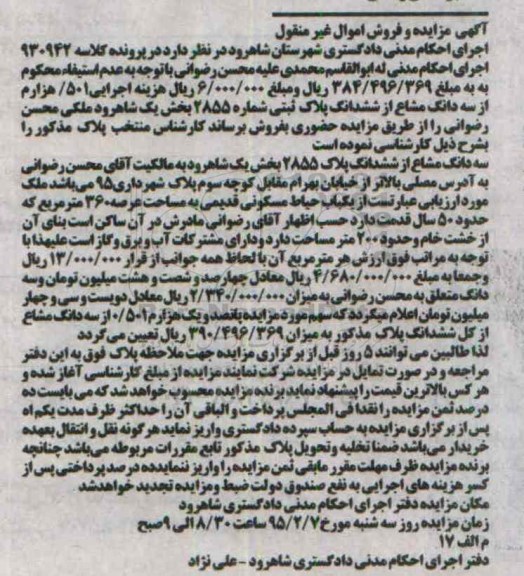 آگهی مزایده و فروش اموال غیر منقول
اجرای احکام مدنی دادگستری شهرستان شاهرود در نظر دارد در پرونده کلاسه ۹۳۰۹۴۲
اجرای احکام مدنی له ابوالقاسم محمدی علیه محسن رضوانی با توجه به عدم استیفاء محکوم
به به مبلغ ۳۸۴/۴۹۶/۳۶۹ ریال ومبلغ ۶/۰۰۰/۰۰۰ ریال هزینه اجرایی ۵۰۱/ هزارم
از سه دانگ مشاع از ششدانگ پلاک ثبتی شماره ۲۸۵۵ بخش یک شاهرود ملکی محسن
رضوانی را از طریق مزایده حضوری بفروش برساند کارشناس منتخب پلاک مذکور را
بشرح ذیل کارشناسی نموده است
سه دانگ مشاع از ششدانگ پلاک ۲۸۵۵ بخش یک شاهرود به مالکیت آقای محسن رضوانی
به آدرس مصلی بالاتر از خیابان بهرام مقابل کوچه سوم پلاک شهرداری ۹۵ می باشد ملک
مورد ارزیابی عبارتست از یکباب حیاط مسکونی قدیمی به مساحت عرصه ۳۶۰ متر مربع که
حدود ۵۰ سال قدمت دارد حسب اظهار آقای رضوانی مادرش در آن ساکن است بنای آن
از خشت خام وحدود ۲۰۰ متر مساحت دارد ودارای مشترکات آب و برق وگاز است علیهذا با
توجه به مراتب فوق ارزش هر متر مربع آن با لحاظ همه جوانب از قرار ۱۳/۰۰۰/۰۰۰ ریال
وجمعا به مبلغ ۴/۶۸۰/۰۰۰/۰۰۰ ریال معادل چهارصد و شصت و هشت میلیون تومان وسه
دانگ متعلق به محسن رضوانی به میزان ۲/۳۴۰/۰۰۰/۰۰۰ ریال معادل دویست و سی و چهار
میلیون تومان اعلام میگردد که سهم مورد مزایده پانصد و یک هزارم ۰/۵۰۱ از سه دانگ مشاع
از کل ششدانگ پلاک مذکور به میزان ۳۹۰/۴۹۶/۳۶۹ ریال تعیین می گردد
لذا طالبین می توانند ۵ روز قبل از برگزاری مزایده جهت ملاحظه پلاک فوق به این دفتر
مراجعه و در صورت تمایل در مزایده شرکت نمایند مزایده از مبلغ کارشناسی آغاز شده و
هر کس بالاترین قیمت را پیشنهاد نماید برنده مزایده محسوب خواهد شد که می بایست ده
درصد ثمن مزایده را نقدا فی المجلس پرداخت و الباقی آن را حداکثر ظرف مدت یکم اه
پس از برگزاری مزایده به حساب سپرده دادگستری واریز نماید هر گونه نقل و انتقال بعهده
خریدار می باشد ضمنا تخلیه و تحویل پلاک مذکور تابع مقررات مربوطه می باشد چنانچه
برنده مزایده ظرف مهلت مقرر مابقی ثمن مزایده را واریز ننماید ده درصد پرداختی پس از
کسر هزینه های اجرایی به نفع صندوق دولت ضبط و مزایده تجدید خواهد شد
مکان مزایده دفتر اجرای احکام مدنی دادگستری شاهرود
زمان مزایده روز سه شنبه مورخ ۹۵/۲/۷ ساعت ۸/۳۰ الی ۹ صبح
م الف ۱۷
دفتر اجرای احکام مدنی دادگستری شاهرود - علی نژاد